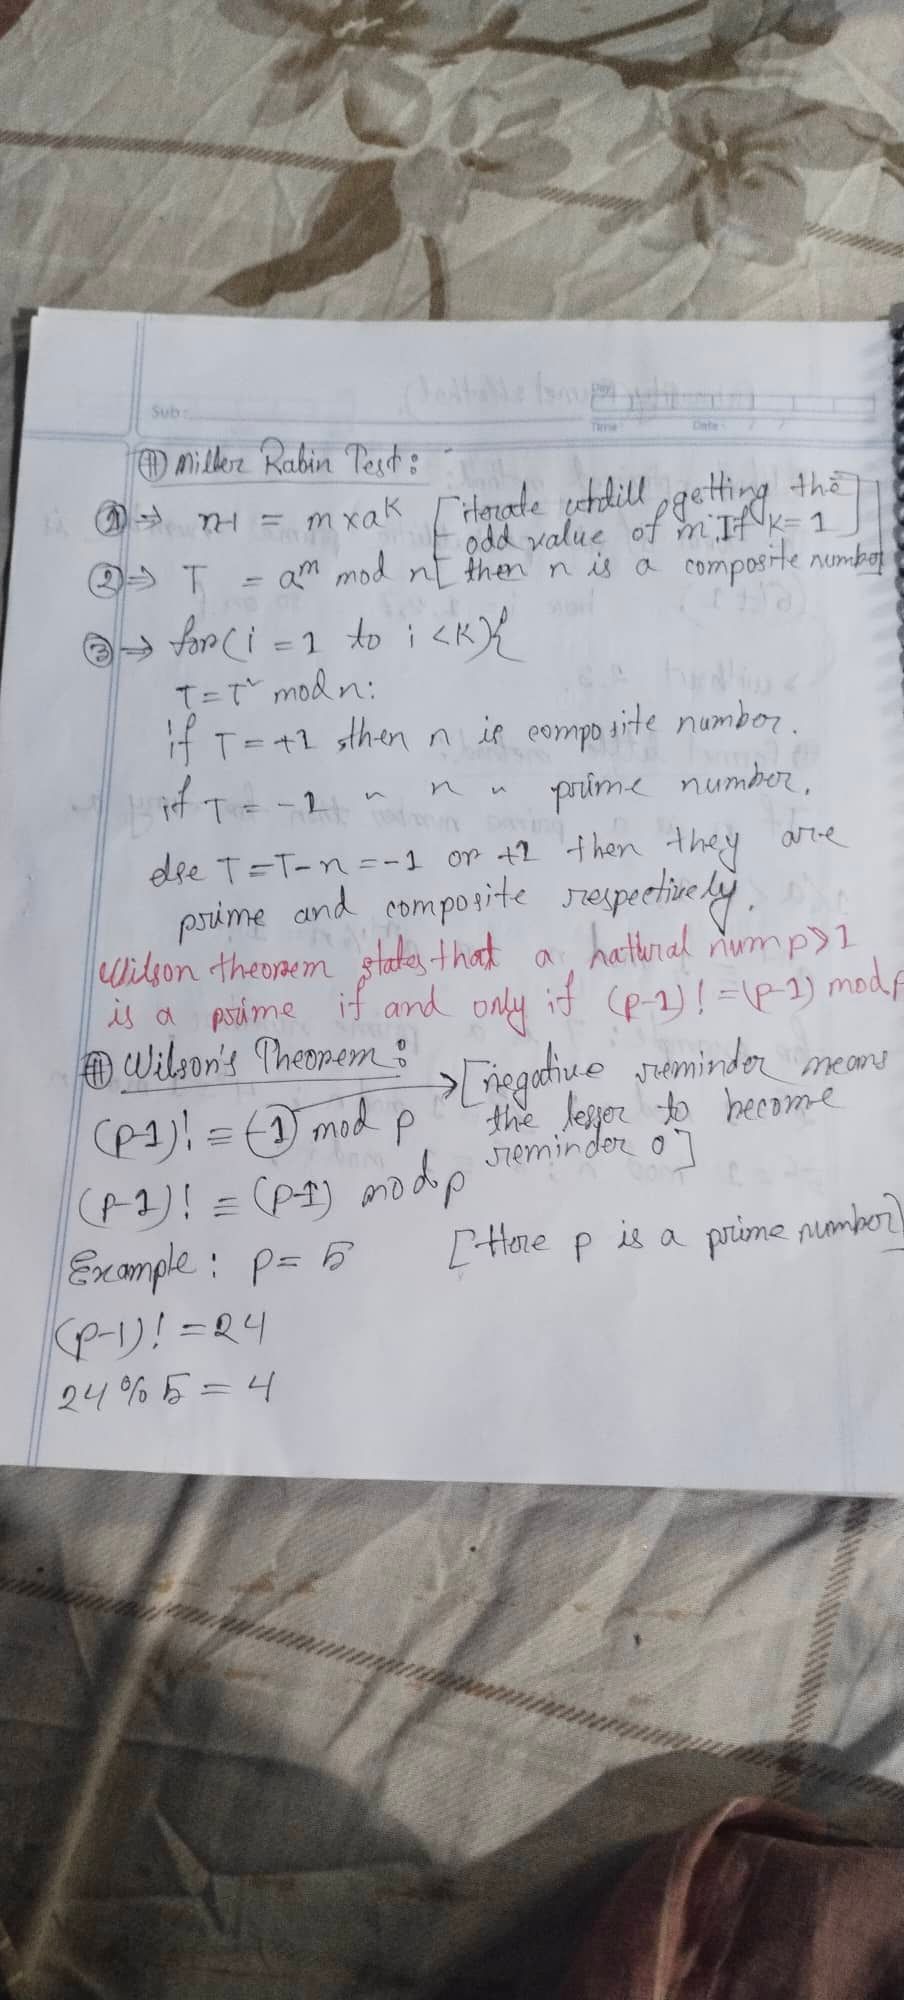 Sub:
Day
Time: Date: / /
Miller Rabin Test:
① ⇒ n-1 = m x a^k [iterate utdill getting the odd value of m. If k=1
② ⇒ T = a^m mod n [then n is a composite number]
③ → for(i = 1 to i <k){
T = T² mod n:
if T = +1 then n is composite number.
if T = -1 " n " prime number.
else T = T-n = -1 or +1 then they are
prime and composite respectively.
Wilson theorem states that a natural num p>1
is a prime if and only if (p-1)! = (p-1) mod p
Wilson's Theorem: → [negative reminder means
(p-1)! ≡ (-1) mod p the lesser to become
reminder 0]
(p-1)! ≡ (p-1) mod p
Example: p = 5 [Here p is a prime number]
(p-1)! = 24
24 % 5 = 4